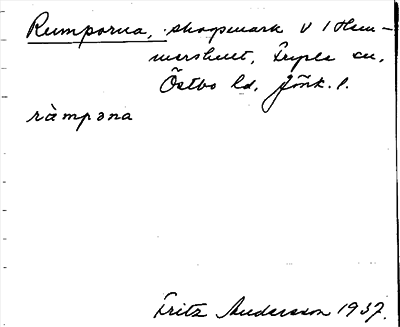 Rumporna, skogsmark V i Hem-
mershult, Fryele sn,
Östbo hd, Jönk. l.
ràmpəna
Fritz Andersson 1937.